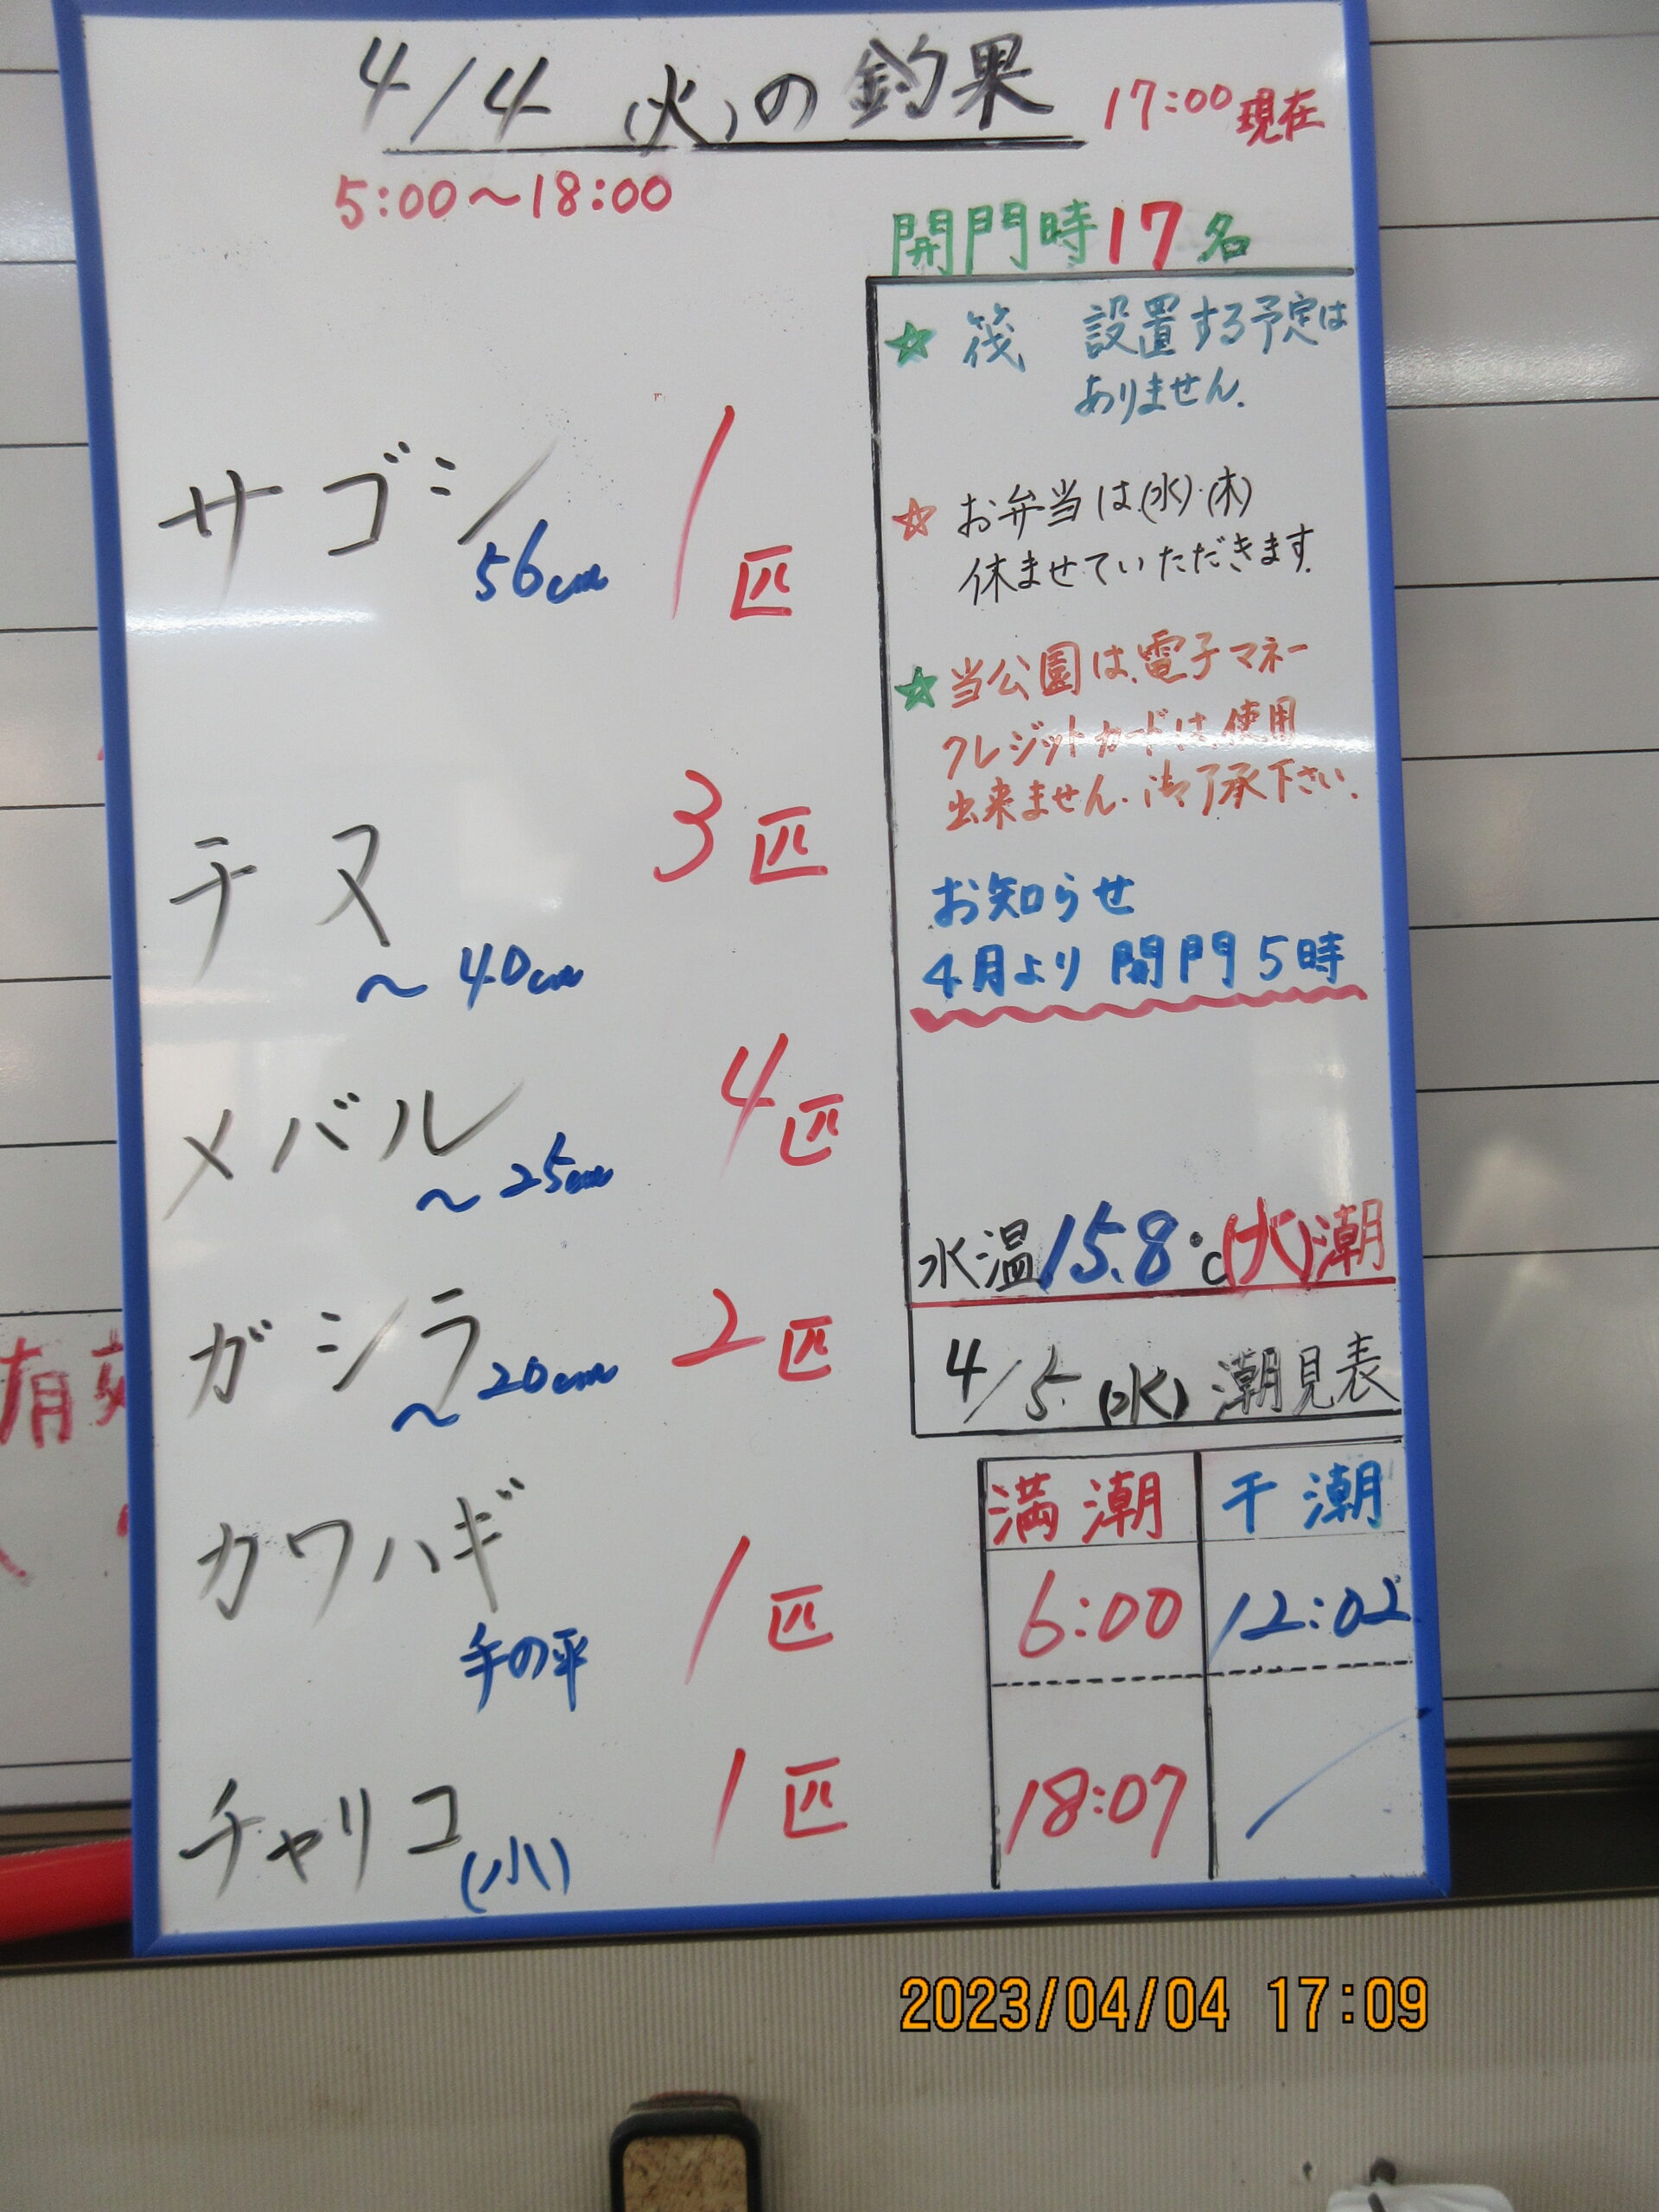 4/4 (火)の釣果 17:00現在
5:00～18:00
開門時17名
サゴシ 56cm 1匹
チヌ ～40cm 3匹
メバル ～25cm 4匹
ガシラ ～20cm 2匹
カワハギ 手の平 1匹
チャリコ(小) 1匹
☆ 筏 設置する予定は
ありません.
☆ お弁当は(水)・(木)
休ませていただきます.
☆ 当公園は、電子マネー
クレジットカードは、使用
出来ません. 御了承下さい.
お知らせ
4月より 開門5時
水温15.8℃(大)潮
4/5 (水) 潮見表
満潮 干潮
6:00 12:02
18:07 /
有効
2023/04/04 17:09